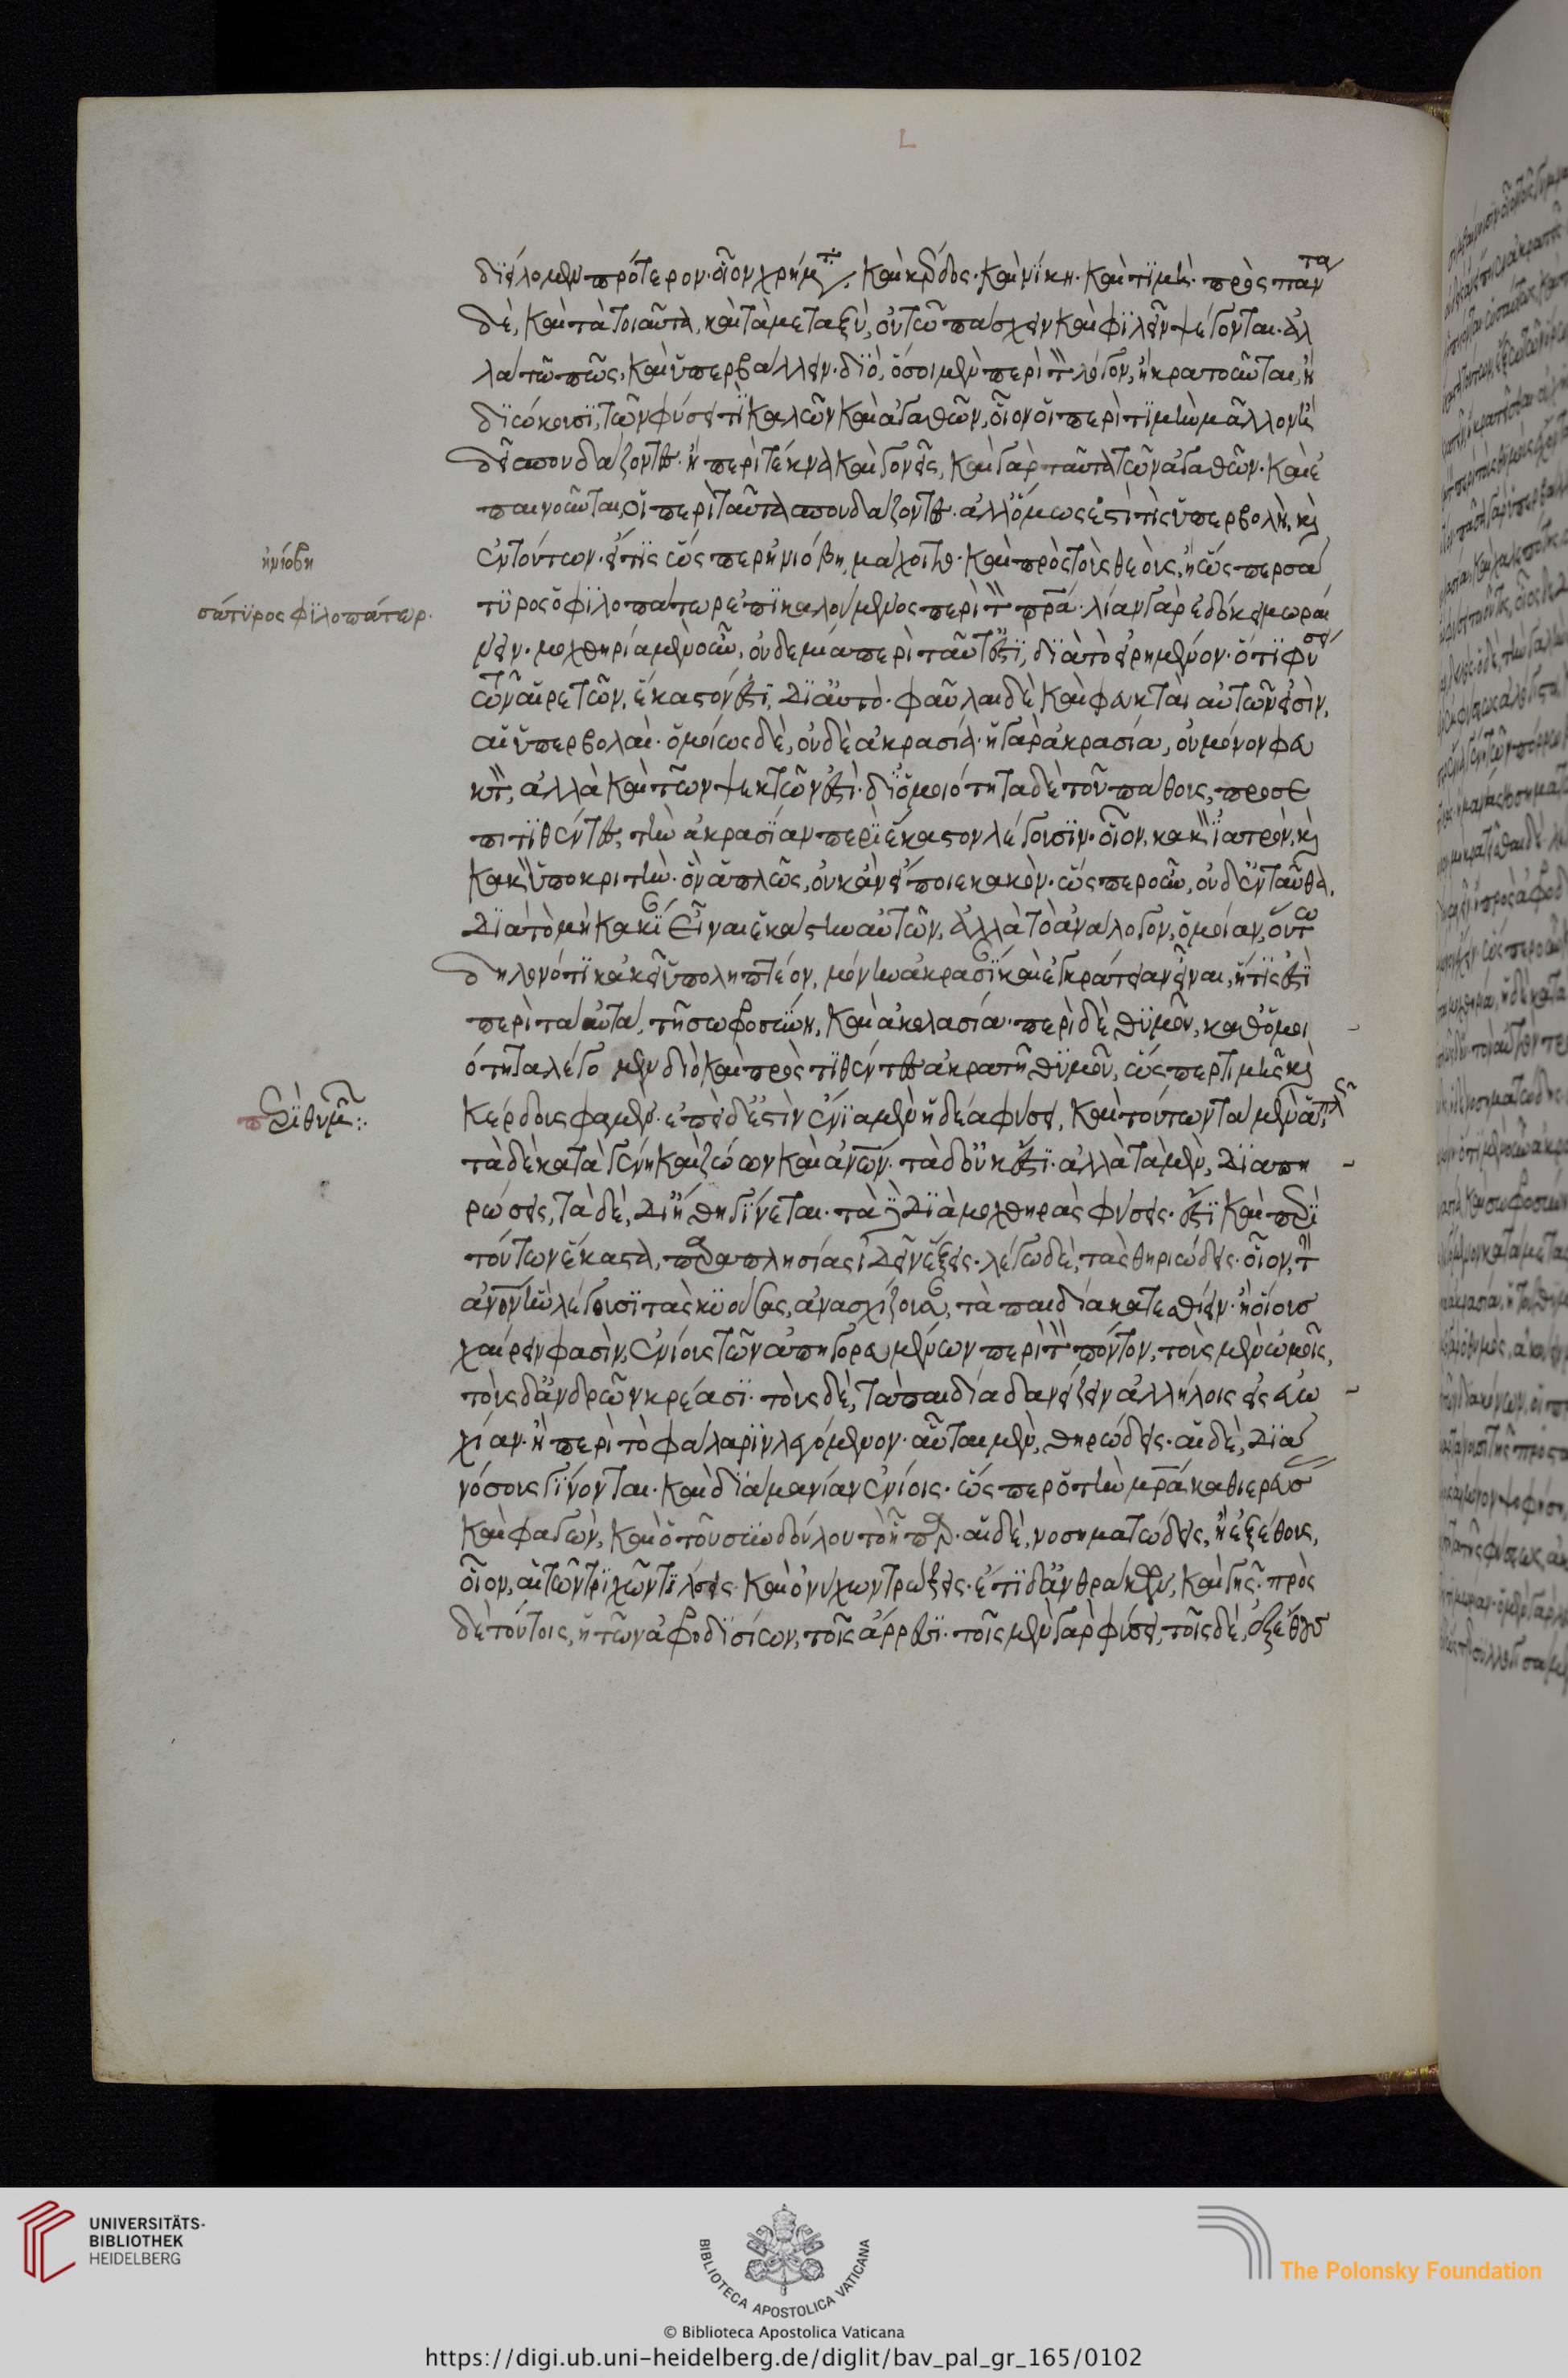 διείλομεν πρότερον· οἷον χρήματα· καὶ κέρδος· καὶ νίκη· καὶ τιμή· πρὸς πάντα
δὲ, καὶ τὰ τοιαῦτα, καὶ τὰ μεταξὺ, οὐ τῶ πάσχειν καὶ φιλεῖν ψέγονται· ἀλ
λὰ τῶ πῶς, καὶ ὑπερβάλλειν· διὸ, ὅσοι μὲν περὶ τὸν λόγον, ἢ κρατοῦνται, ἢ
διώκουσι, τῶν φύσει τι καλῶν καὶ ἀγαθῶν, οἷον οἱ περὶ τιμὴν μᾶλλον ἢ
δεῖ σπουδάζοντες· ἢ περὶ τέκνα καὶ γονεῖς, καὶ γὰρ ταῦτα τῶν ἀγαθῶν· καὶ ἐ
παινοῦνται, οἱ περὶ ταῦτα σπουδάζοντες· ἀλλ' ὅμως ἐστί τις ὑπερβολὴ, καὶ
ἐν τούτων· εἴ τις ὥσπερ ἡ νιόβη, μάχοιτο· καὶ πρὸς τοὺς θεοὺς, ἢ ὥσπερ σά
ἡ νιόβη
τυρος ὁ φιλοπάτωρ ἐπικαλούμενος περὶ τὸν πρα· λίαν γὰρ ἐδόκει μωραί
σάτυρος φιλοπάτερ·
νειν· μοχθηρία μὲν οὖν, οὐδεμία περὶ ταῦτ' ἐστι, διὰ τὸ εἰρημένον· ὅτι φύσει
τῶν αἱρετῶν, ἕκαστόν ἐστι, δι' αὐτὸ· φαῦλαι δὲ καὶ φευκταὶ αὐτῶν εἰσὶν,
αἱ ὑπερβολαὶ· ὁμοίως δὲ, οὐδὲ ἀκρασία· ἡ γὰρ ἀκρασία, οὐ μόνον φευ
κτὸν, ἀλλὰ καὶ τῶν ψεκτῶν ἐστὶ· δι' ὁμοιότητα δὲ τοῦ πάθους, προσε
πιτιθέντες, τὴν ἀκρασίαν περὶ ἕκαστον λέγουσιν· οἷον, κακὸν ἰατρὸν, καὶ
κακὸν ὑποκριτὴν· ὃν ἁπλῶς, οὐκ ἂν εἴποιε κακὸν· ὥσπερ οὖν, οὐδ' ἐνταῦθα,
διὰ τὸ μὴ κακία εἶναι ἑκάστην αὐτῶν, ἀλλὰ τὸ ἀνάλογον, ὁμοίαν, οὕτω
δηλονότι κἀκεῖ ὑποληπτέον, μόνην ἀκρασίαν καὶ ἐγκράτειαν εἶναι, ἥτις ἐστὶ
περὶ τὰ αὐτὰ, τῆ σωφροσύνη, καὶ ἀκολασία· περὶ δὲ θυμοῦ, καθ' ὁμοι
ότητα λέγομεν διὸ καὶ προστιθέντες ἀκρατῆ θυμοῦ, ὥσπερ τιμῆς καὶ
κέρδους φαμὲν· ἐπεὶ δ' ἐστὶν ἔνια μὲν ἡδέα φύσει, καὶ τούτων τὰ μὲν ἁπλῶς
περὶ θυμοῦ:·
τὰ δὲ κατὰ γένη καὶ ζώων καὶ ἀνων· τὰ δ' οὐκ ἔστι· ἀλλὰ τὰ μὲν, διὰ πη
ρώσεις, τὰ δὲ, δι' ἤθη γίνεται· τὰ δὲ διὰ μοχθηρὰς φύσεις· ἔστι καὶ περὶ
τούτων ἕκαστα, παραπλησίας ἰδεῖν ἕξεις· λέγω δὲ, τὰς θηριώδεις· οἷον, τὴν
ἀνον ἣν λέγουσι τὰς κυούσας, ἀνασχίζουσαν, τὰ παιδία κατεσθίειν· ἢ οἵοις
χαίρειν φασὶν, ἐνίοις τῶν ἀπηγορευμένων περὶ τὸν πόντον, τοὺς μὲν ὠμοῖς,
τοὺς δ' ἀνδρῶν κρέασι· τοὺς δὲ, τὰ παιδία δανείζειν ἀλλήλοις εἰς εὐω
χίαν· ἢ περὶ τὸ φάλαριν λεγόμενον· αὗται μὲν, θηριώδεις· αἱ δὲ, διὰ
νόσους γίνονται· καὶ διὰ μανίαν ἐνίοις· ὥσπερ ὁ τὴν μρα καθιερεύσας
καὶ φαγὼν, καὶ ὁ τοῦ συνδούλου τὸ ἧπαρ· αἱ δὲ, νοσηματώδεις, ἢ ἐξ ἔθους,
οἷον, αἱ τῶν τριχῶν τίλσεις· καὶ ὀνύχων τρώξεις· ἔτι δ' ἀνθράκων, καὶ γῆς· πρὸς
δὲ τούτοις, ἡ τῶν ἀφροδισίων, τοῖς ἄρρεσι· τοῖς μὲν γὰρ φύσει, τοῖς δὲ, ἐξ ἔθους
UNIVERSITÄTS-
BIBLIOTHEK
HEIDELBERG
BIBLIOTECA APOSTOLICA VATICANA
The Polonsky Foundation
© Biblioteca Apostolica Vaticana
https://digi.ub.uni-heidelberg.de/diglit/bav_pal_gr_165/0102